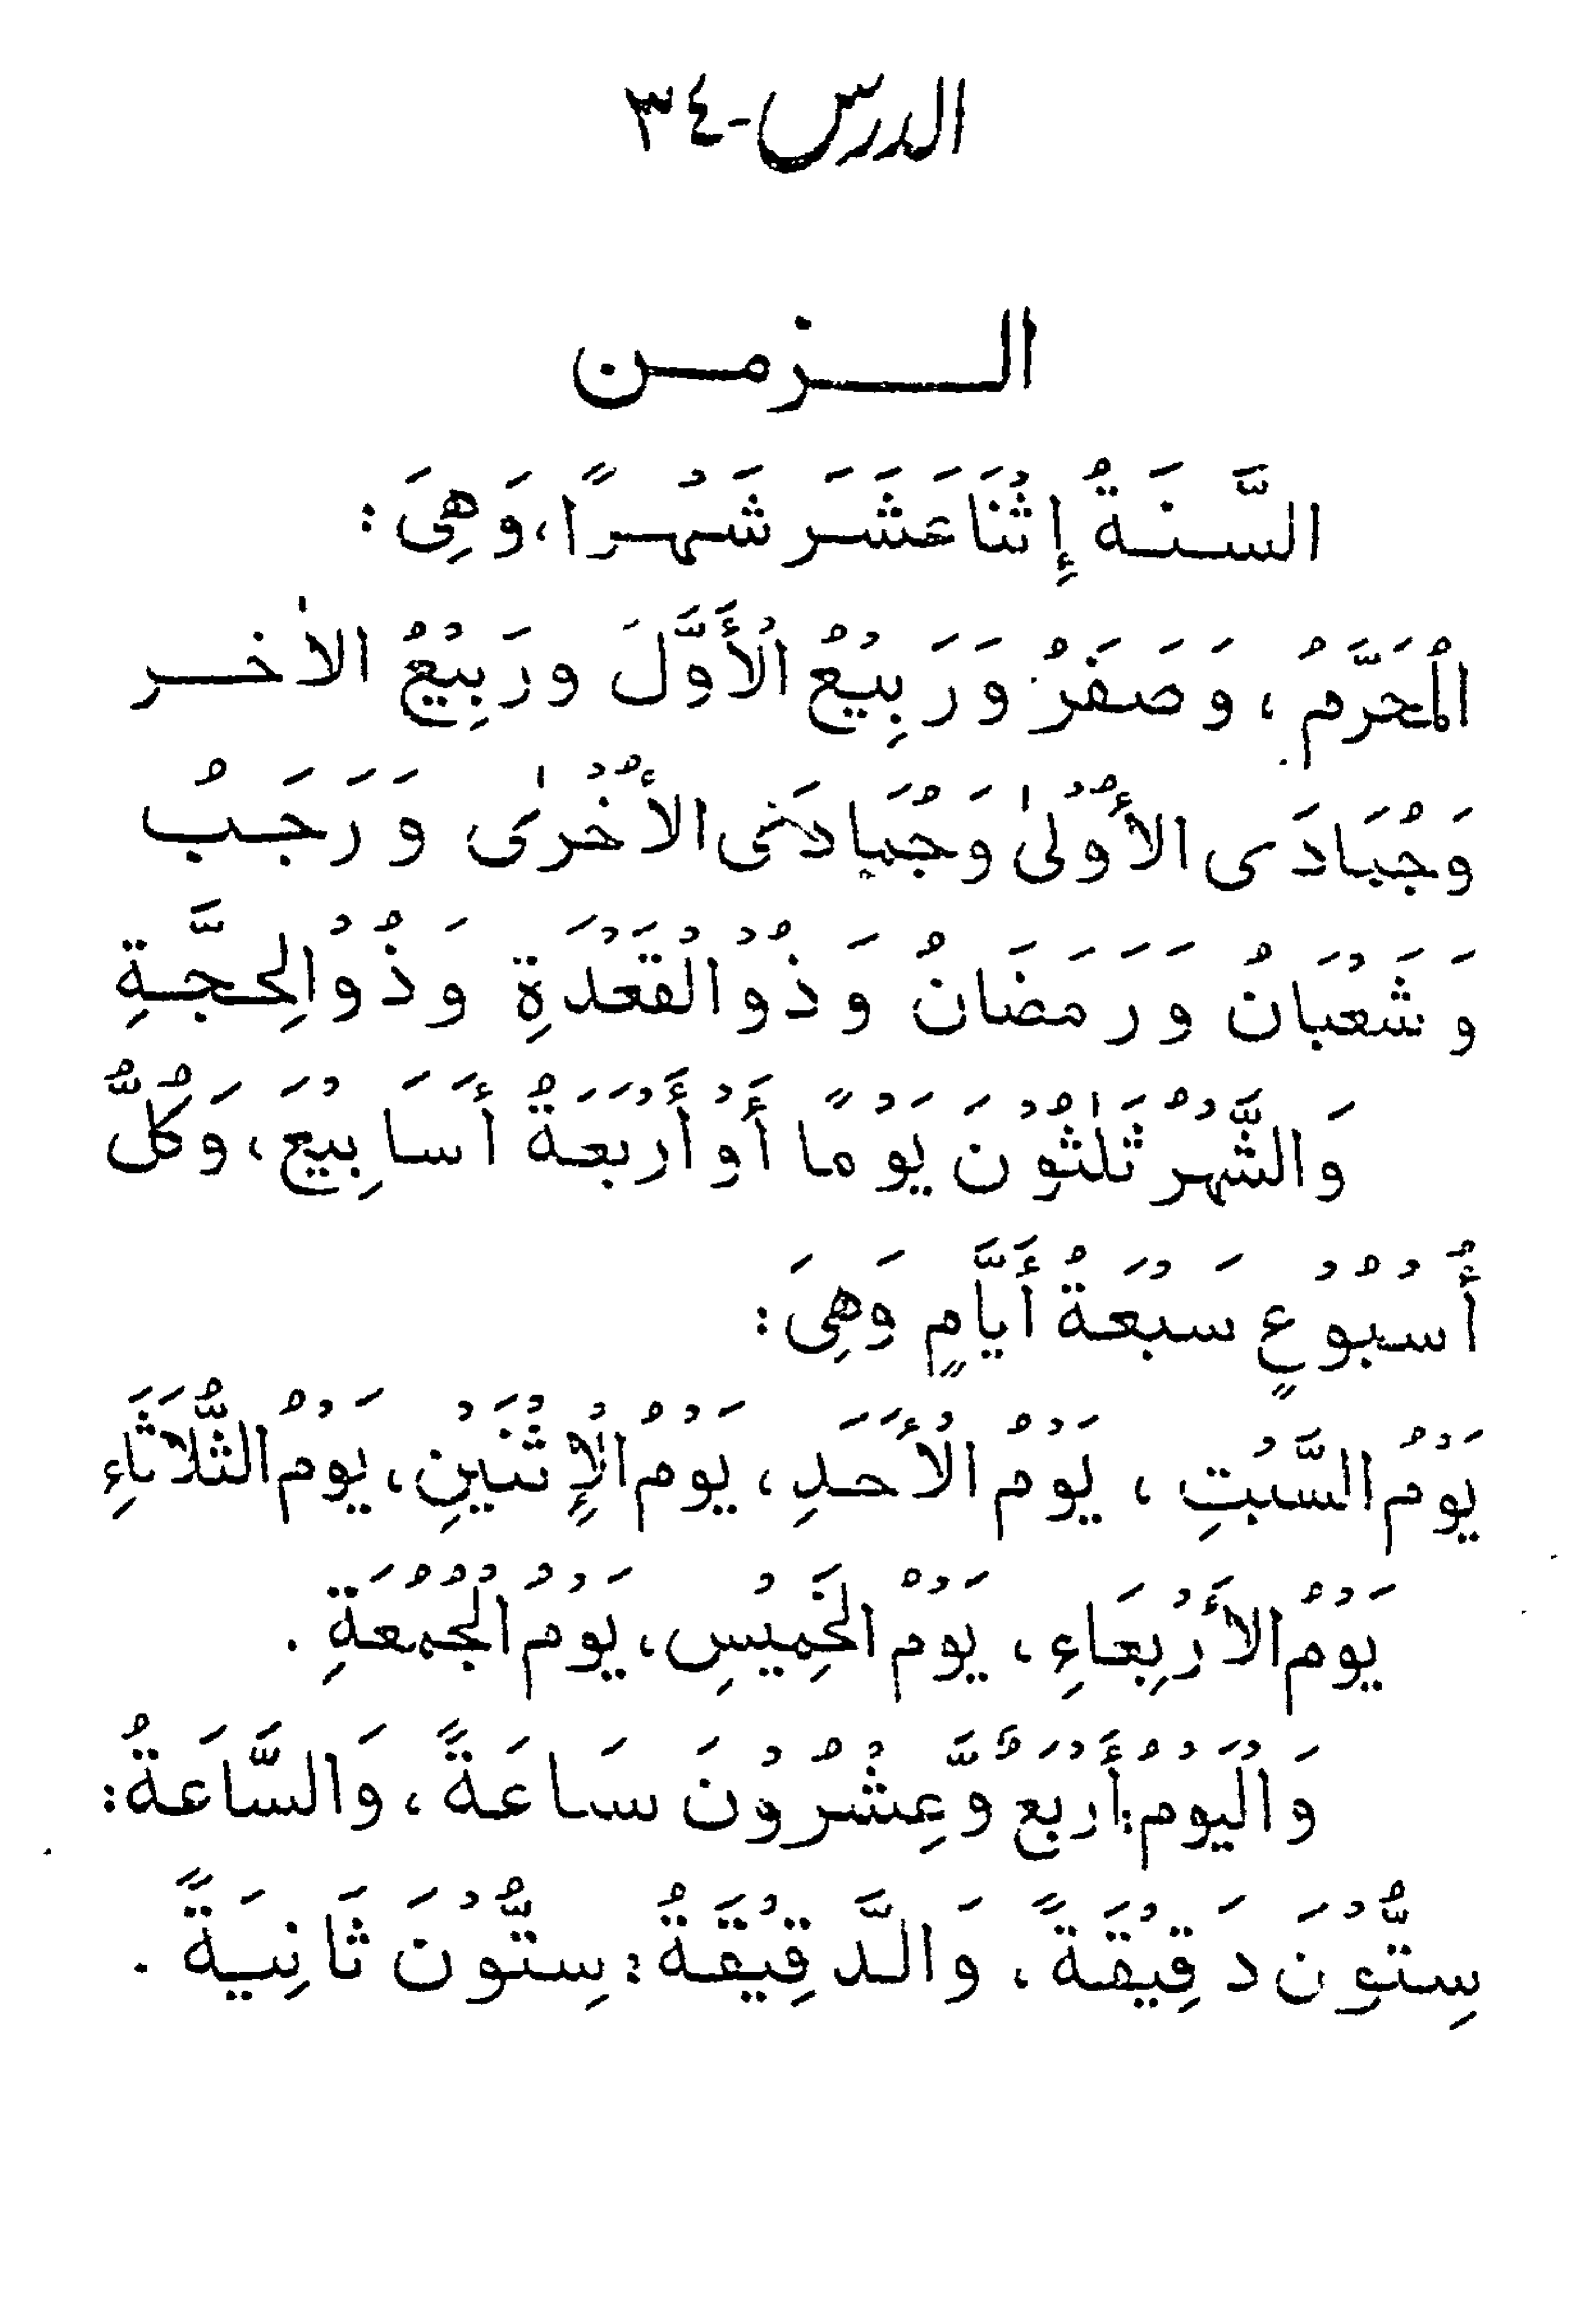 الدرس-٣٤
الزمن
السَّنَةُ إِثْنَا عَشَرَ شَهْرًا، وَهِىَ :
الْمُحَرَّمُ ، وَصَفَرُ وَرَبِيْعُ الْأَوَّلَ ورَبِيْعُ الاٰخر
وَجُمَادَى الأُوْلىٰ وَجُمَادَى الأُخْرىٰ وَرَجَبُ
وَشَعْبَانُ وَرَمَضَانُ وَذُوْالْقَعْدَةِ وَذُوْالِحجَّةِ
وَالشَّهْرُ ثَلٰثُوْنَ يَوْمًا أَوْ أَرْبَعَةُ أَسَابِيْعَ، وَكُلُّ
أُسْبُوْعٍ سَبْعَةُ أَيَّامٍ وَهِىَ :
يَوْمُ السَّبْتِ ، يَوْمُ الْأَحَدِ ، يَوْمُ الْإِثْنَيْنِ، يَوْمُ الثُّلَاثَاءِ
يَوْمُ الأَرْبِعَاءِ ، يَوْمُ الخَمِيْسِ، يَوْمُ الْجُمُعَةِ .
وَالْيَوْمُ : أَرْبَعٌ وَّعِشْرُوْنَ سَاعَةً ، وَالسَّاعَةُ :
سِتُّوْنَ دَقِيْقَةً ، وَالدَّقِيْقَةُ : سِتُّوْنَ ثَانِيَةً .